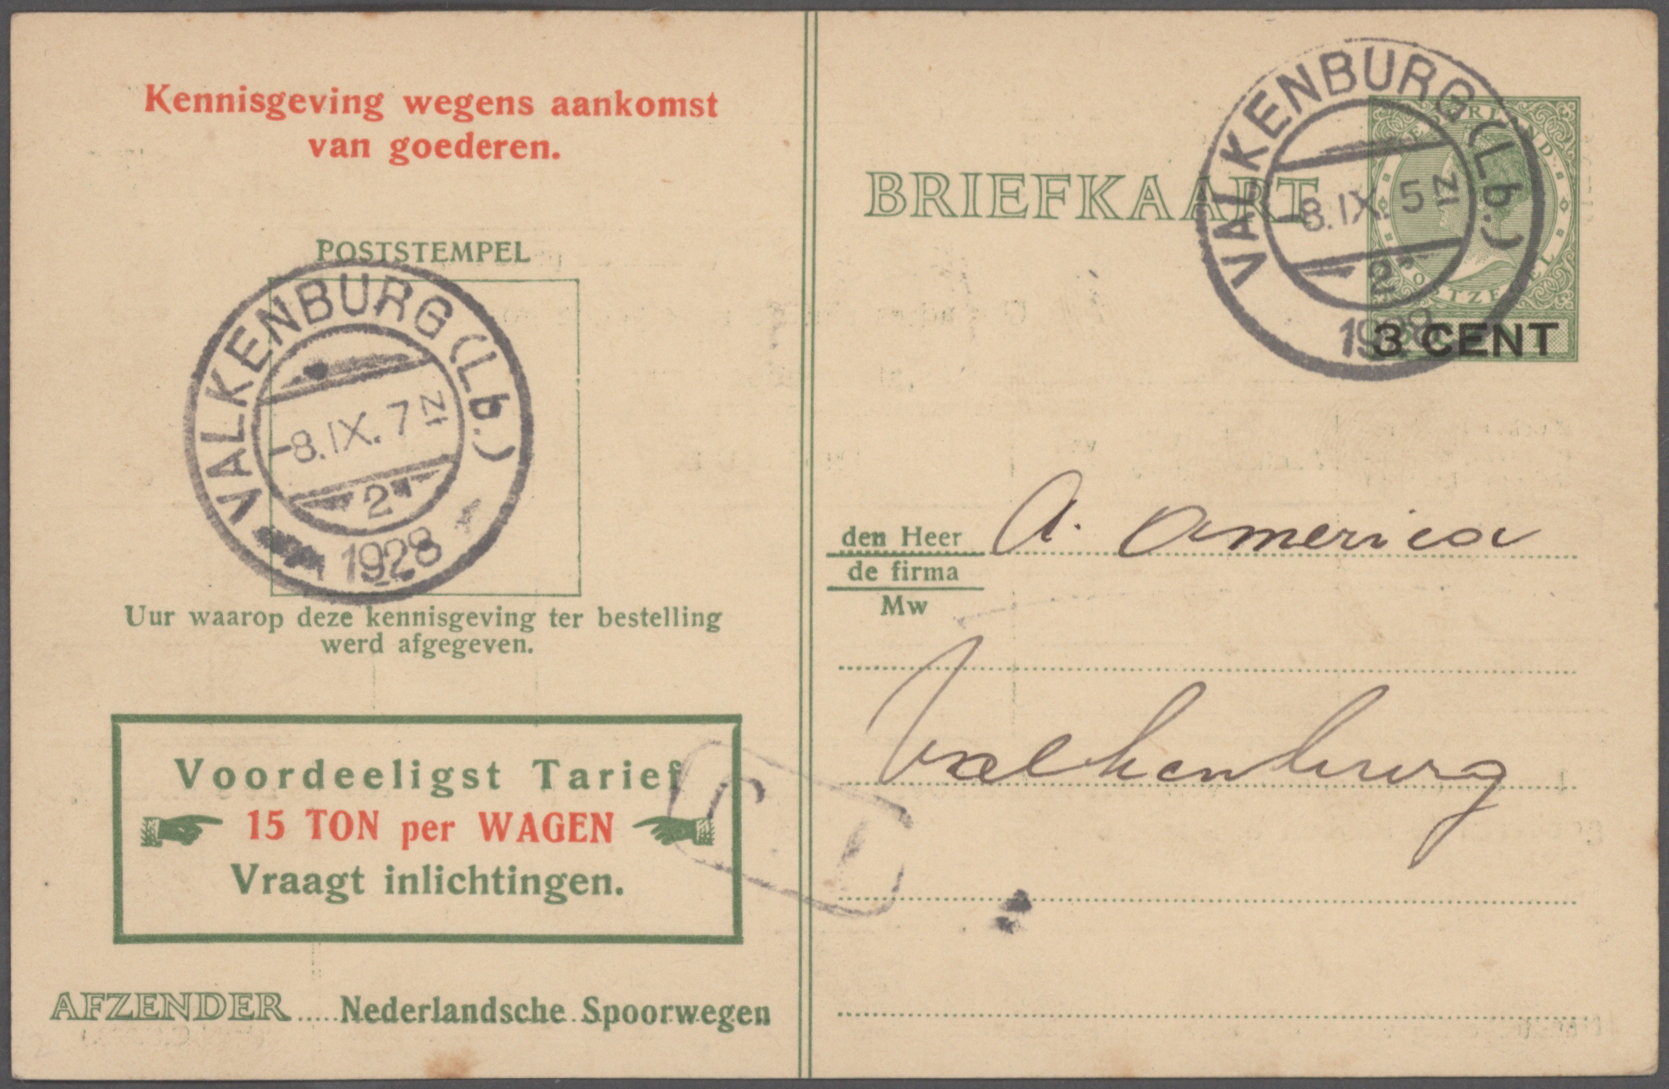 Kennisgeving wegens aankomst
van goederen.
POSTSTEMPEL
VALKENBURG (Lb.)
-8.IX. 7N
2
1928
Uur waarop deze kennisgeving ter bestelling
werd afgegeven.
Voordeeligst Tarief
15 TON per WAGEN
Vraagt inlichtingen.
AFZENDER ..... Nederlandsche Spoorwegen
BRIEFKAART
VALKENBURG (Lb.)
-8.IX. 5N
2
1928
NEDERLAND
POSTZEGEL
3 CENT
den Heer
de firma
Mw
A. America
Valkenburg